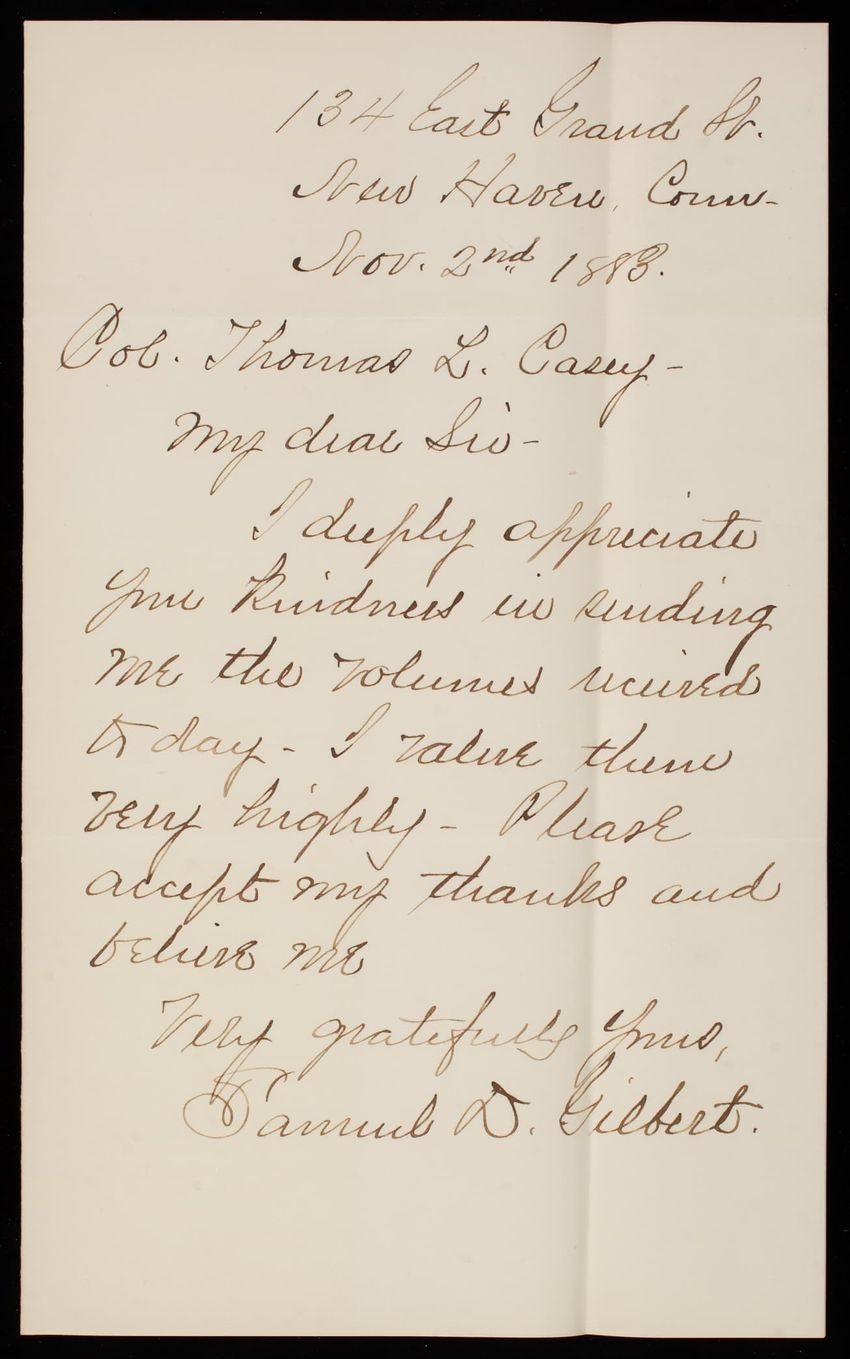 134 East Grand St.
New Haven, Conn-
Nov. 2nd 1883.
Col. Thomas L. Casey-
My dear Sir-
I deeply appreciate
your kindness in sending
me the volumes received
to day- I value them
very highly- Please
accept my thanks and
believe me
Very gratefully yours,
Samuel D. Gilbert.